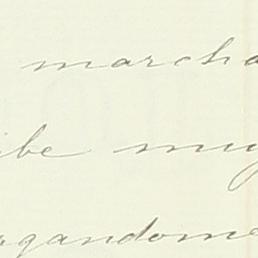 marcha
ibe muy
gandome